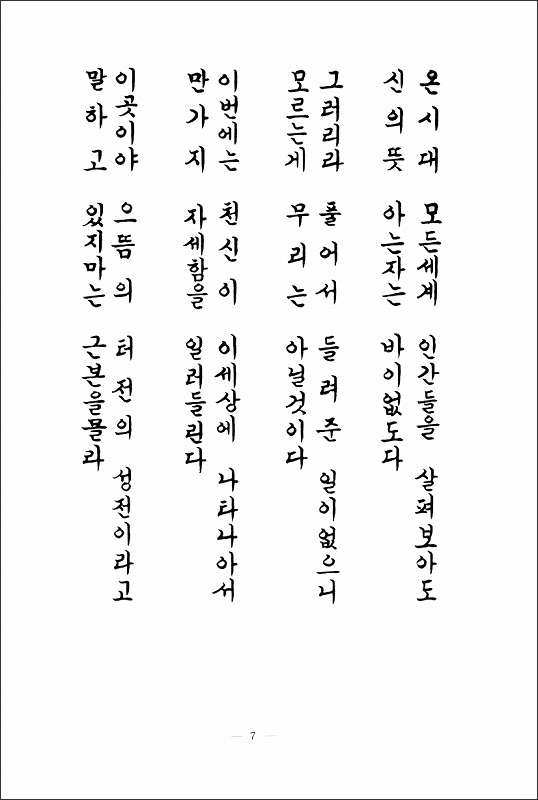 온 시 대 모든세계 인간들을 살펴보아도
신 의 뜻 아는자는 바이없도다
그러리라 풀어서 들려준 일이없으니
모르는게 무리는 아닐것이다
이번에는 천신이 이세상에 나타나아서
만가지 자세함을 일러들린다
이곳이야 으뜸의 터전의 성전이라고
말하고 있지마는 근본을몰라
— 7 —